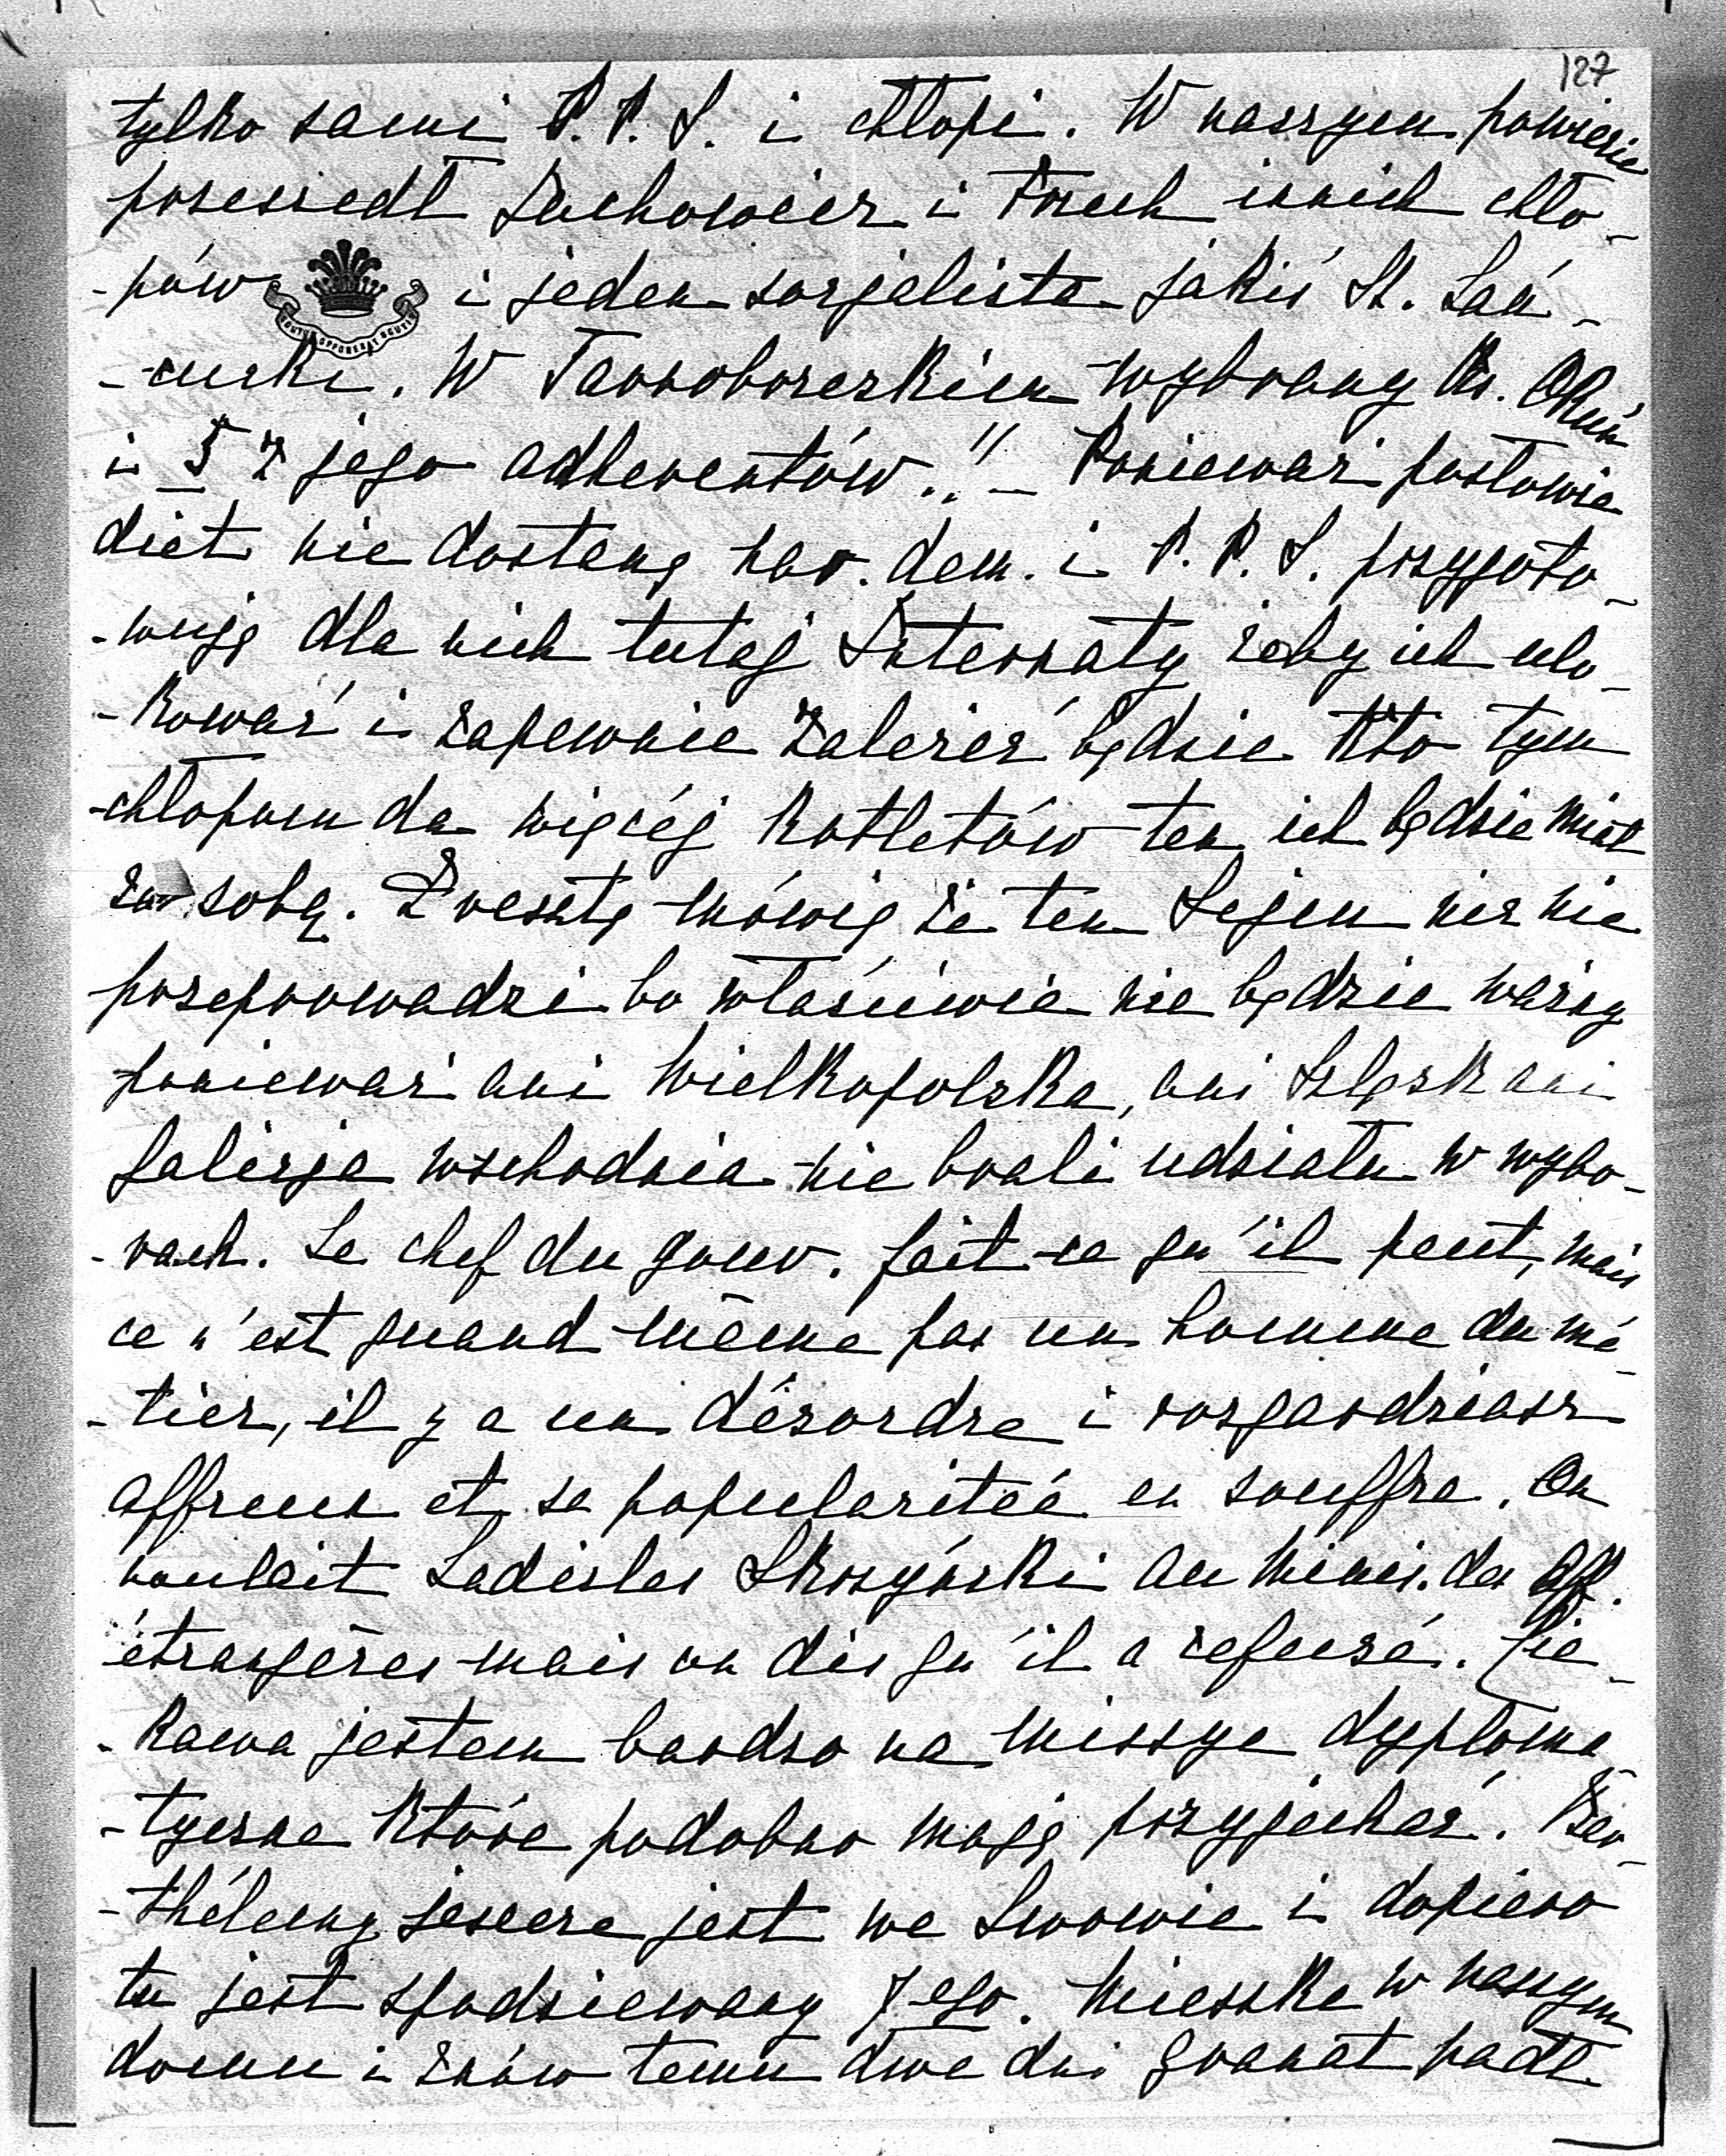 127
tylko sami P.P.S. i chłopi. W naszym powiecie
przeszedł Suchowicz i trzech innich chło-
-pów i jeden socjalista jakiś St. Łań-
-cucki. W Tarnobrzeskiem wybrany ks. Okuń
i 5 z jego adherentów!! – Ponieważ posłowie
diet nie dostaną nar. dem. i P.P.S. przygoto-
-wują dla nich tutaj Internaty żeby ich ulo-
-kować i zapewnie zależeć będzie kto tym
-chłopom da więcéj kotletów ten ich będzie miał
za sobą. Zresztą mówią że ten Sejm nic nie
przeprowadzi bo właściwie nie będzie ważny
ponieważ ani Wielkopolska, ani Szląsk ani
Galicja wschodnia nie brali udziału w wybo-
-rach. Le chef du gouv. fait ce qu'il peut, mais
ce n'est quand même pas un homme du mé-
-tier, il y a un désordre i rozgardziasz
affreux et sa popularitée en souffre. On
voulait Ladislas Skrzyński au Minis. des aff.
étrangères mais on dis qu'il a refusé. Cie-
-kawa jestem bardzo na missye dyploma-
-tyczne które podobno mają przyjechać. Bar-
-thélemy jeszcze jest we Lwowie i dopiero
tu jest spodziewany 7ego. Mieszka w naszym
domu i znów temu dwa dni granat padł